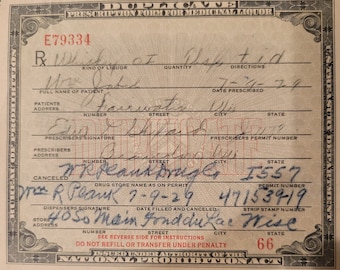 DUPLICATE
PRESCRIPTION FORM FOR MEDICINAL LIQUOR
E79334
R
KIND OF LIQUOR QUANTITY DIRECTIONS
7-9-29
FULL NAME OF PATIENT DATE PRESCRIBED
PATIENTS ADDRESS Fairwater Wis
NUMBER STREET CITY STATE
PRESCRIBERS SIGNATURE PRESCRIBERS PERMIT NUMBER
PRESCRIBERS ADDRESS
NUMBER STREET CITY STATE
CANCELED W R Plank Drug Co I 557
DRUG STORE NAME AS ON PERMIT PERMIT NUMBER
Wm R. Plank 7-9-29 471539-19
DISPENSERS SIGNATURE DATE FILLED AND CANCELED STRIP STAMP NUMBER
40 So Main Fond du Lac Wisc
ADDRESS NUMBER STREET CITY STATE
SEE REVERSE SIDE FOR INSTRUCTIONS
DO NOT REFILL OR TRANSFER UNDER PENALTY 66
ISSUED UNDER AUTHORITY OF THE
NATIONAL PROHIBITION ACT